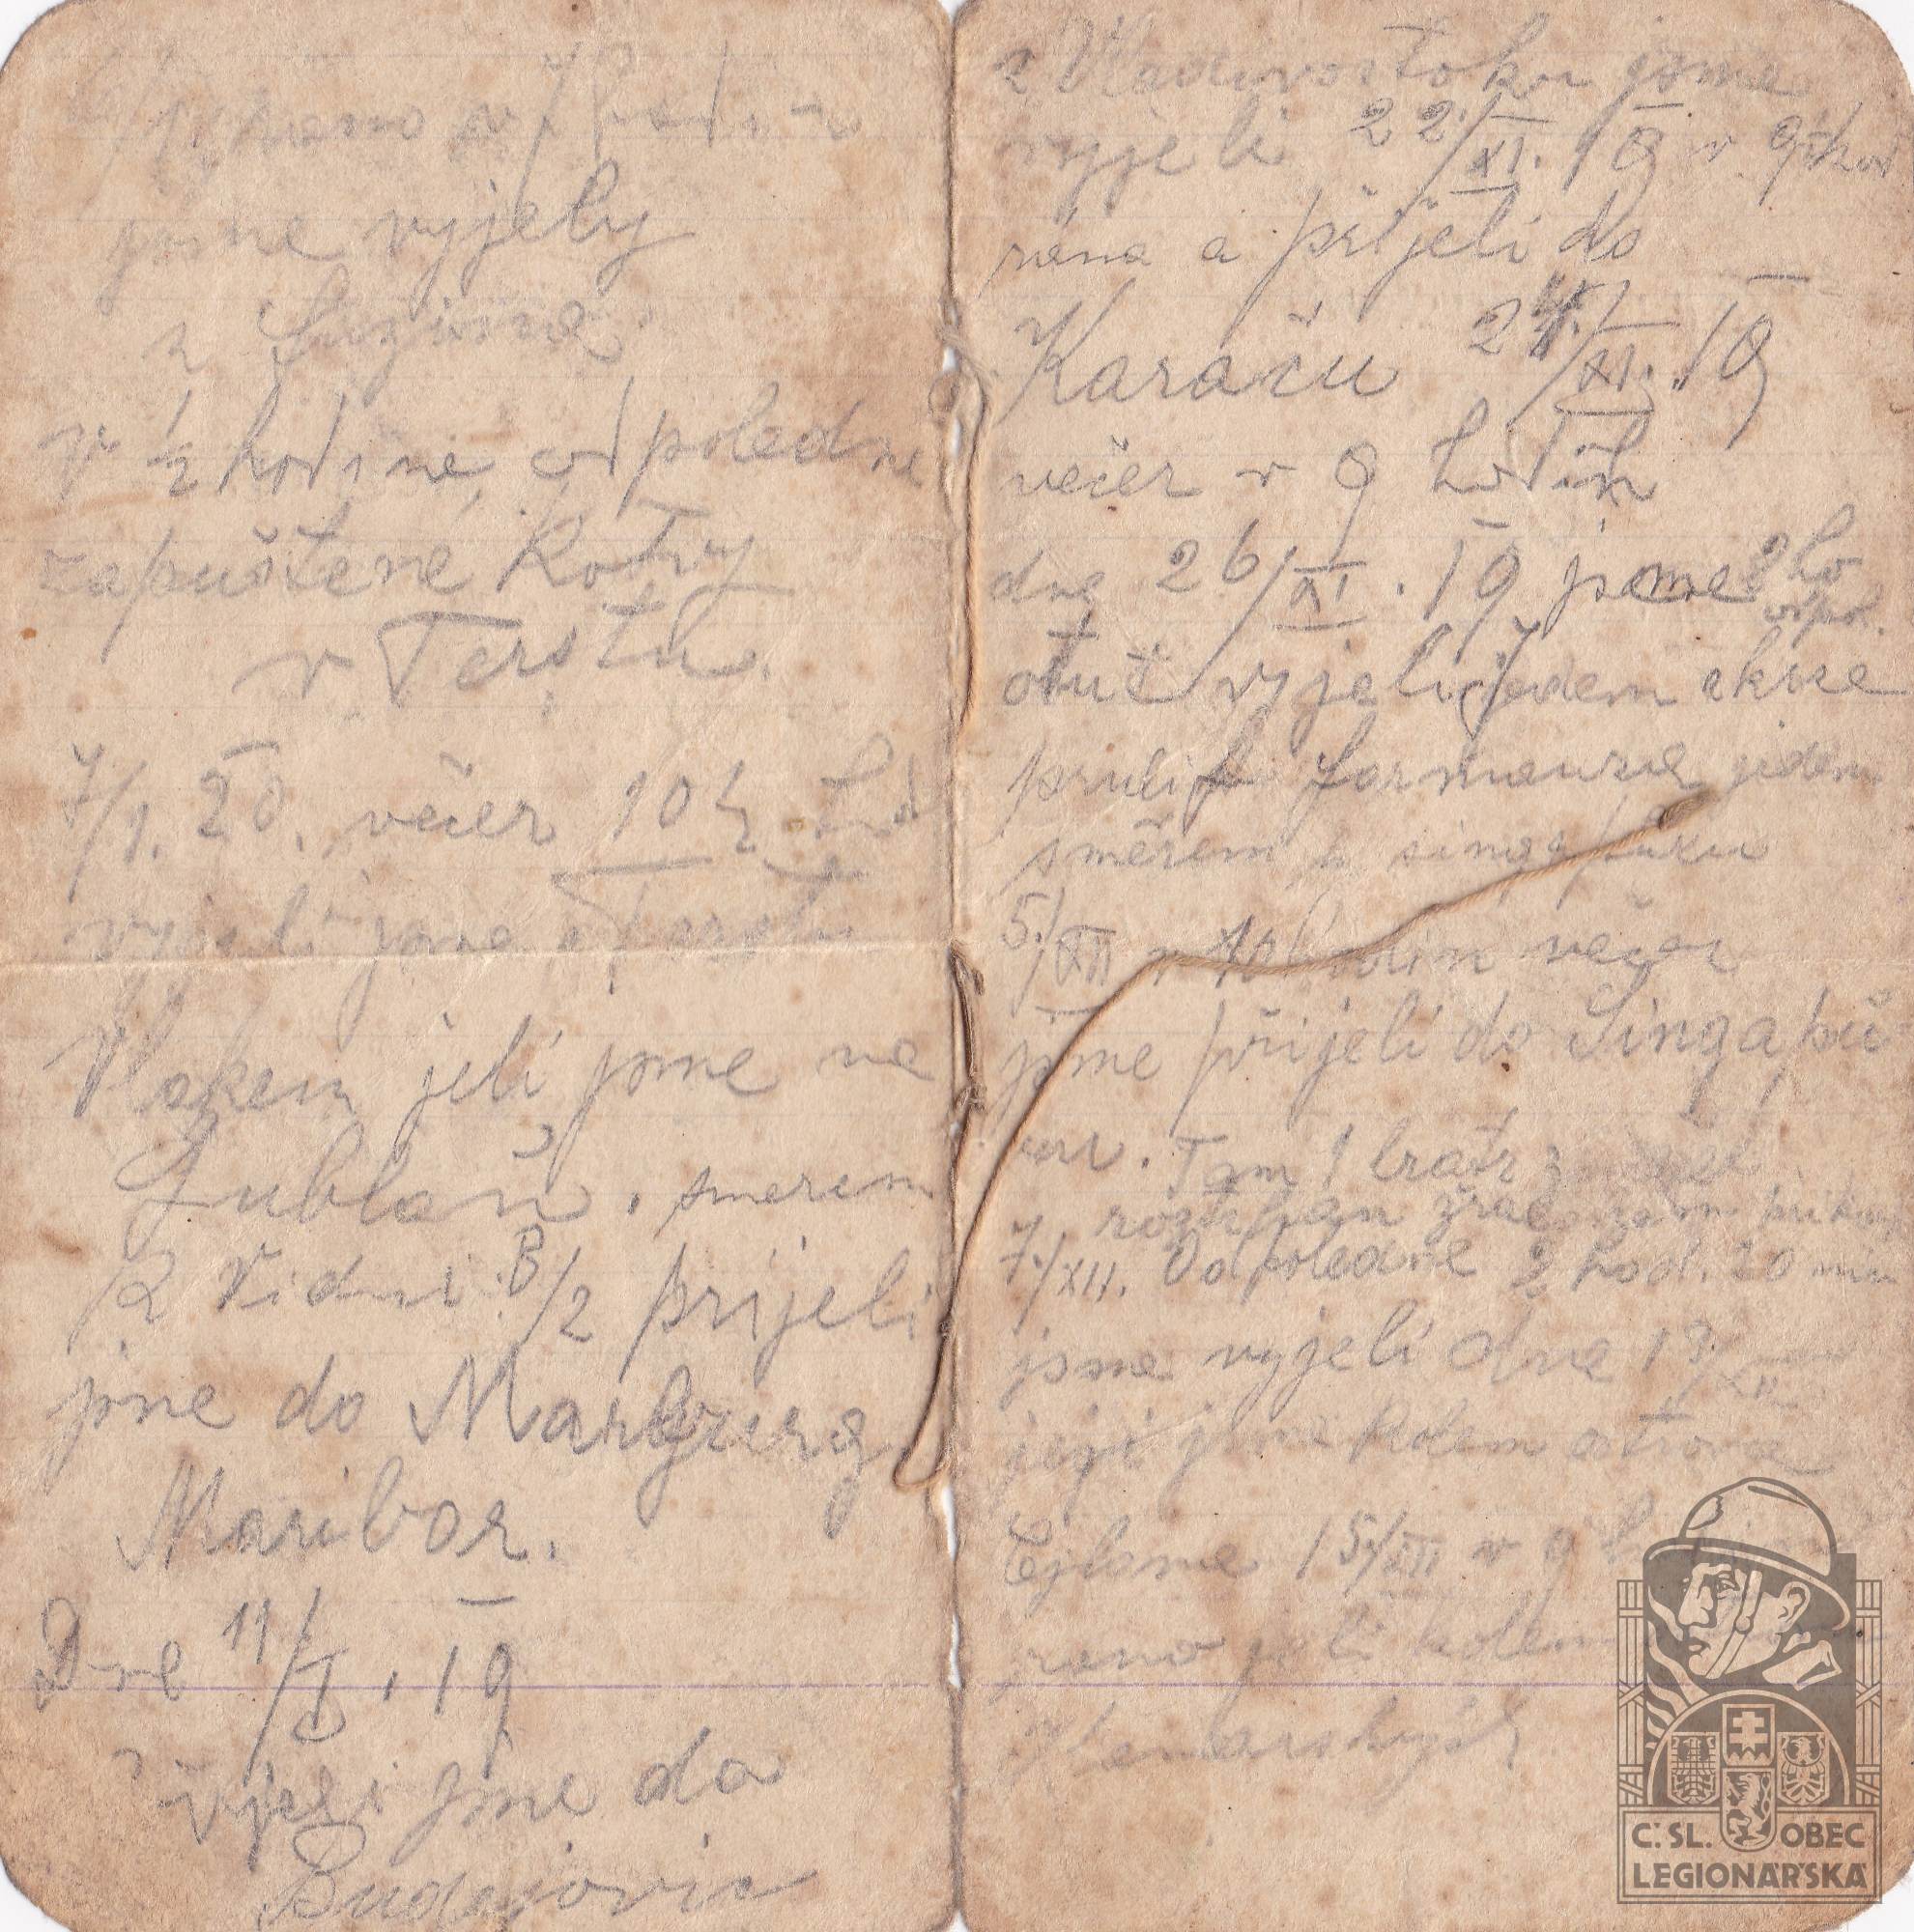 ráno v
jsme vyjely
z
v ½ hodině odpoledne
zapuštěné kotvy
v Terstu.
7/1. 20. večer 10½ hod
vyjeli jsme z Terstu
Vlakem jeli jsme na
Lublaň. smerem
k Vidni. 8/2 prijeli
jsme do Marburg
Maribor.
Dne 11/I. 19
vjeli jsme do
Budejovic
z Vladivostoku jsme
vyjeli 22/XI. 19 v 9 hod
rána a přijeli do
Karaču 24./XI. 19
večer v 9 hodin
dne 26/XI. 19 jsme 2 ho
odpol.
otuť vyjeli jedem skrze
průlif formanza jedem
směrem k singapůru
5./XII v 10 hodin večer
jsme přijeli do Singapů
ru. Tam 1 bratr
roztrhán
7./XII. Odpoledne 2 hod. 20 min
jsme vyjeli dne 13/XII
jeji jsme kolem ostrova
Cejlona 15/XII v 9 h
rano jeli kolem
C.SL. OBEC
LEGIONÁŘSKÁ